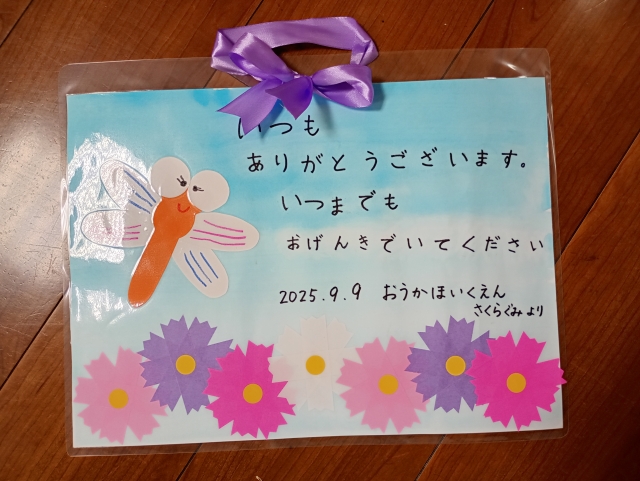 いつも
ありがとうございます。
いつまでも
おげんきでいてください
2025.9.9 おうかほいくえん
さくらぐみより